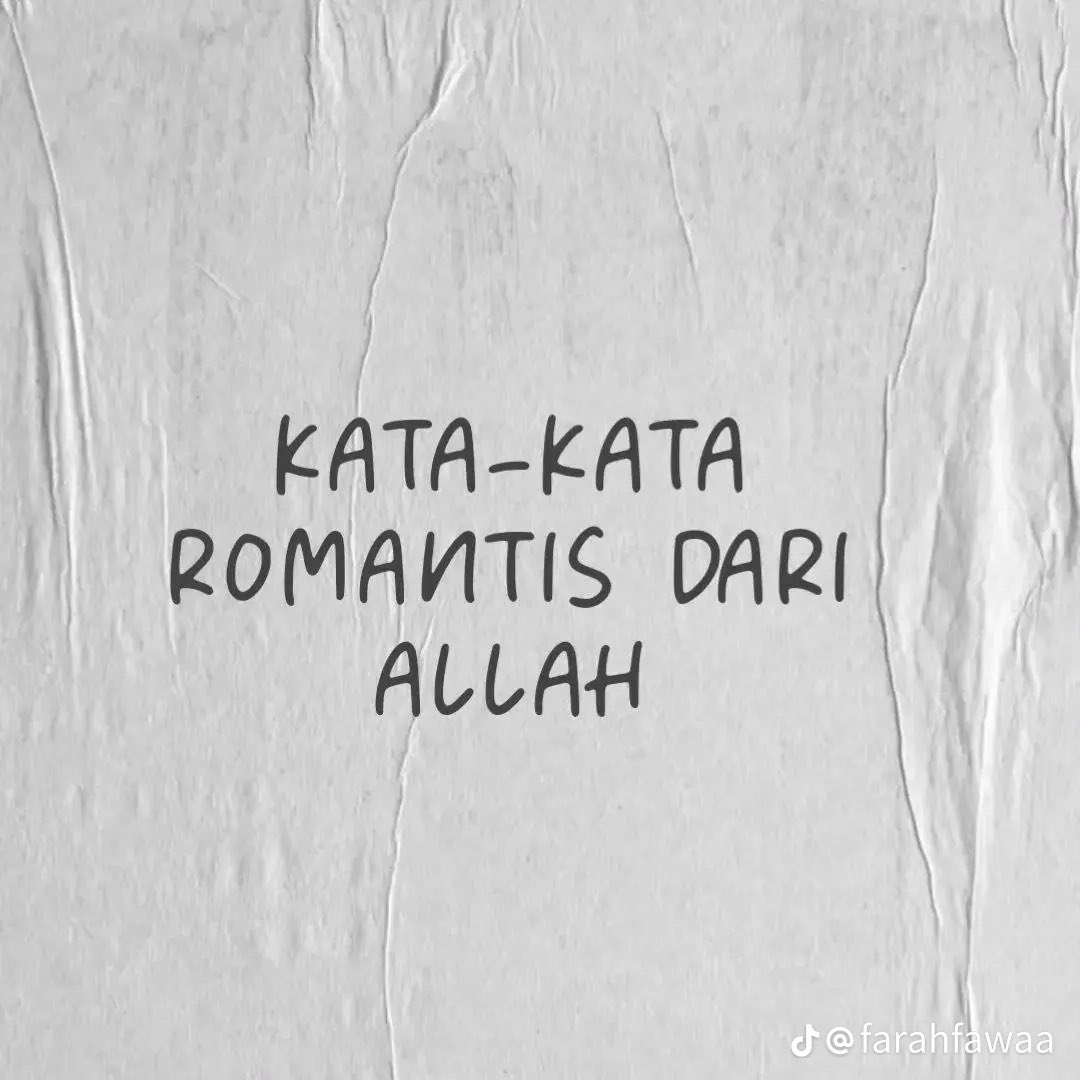 KATA-KATA
ROMANTIS DARI
ALLAH
@farahfawaa